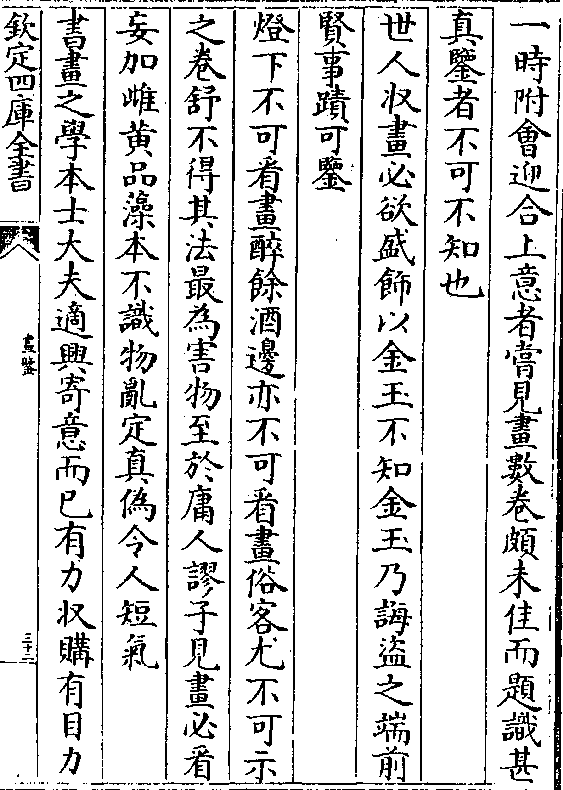 一時附會迎合上意者嘗見畫數卷頗未佳而題識甚
真鑒者不可不知也
世人收畫必欲盛飾以金玉不知金玉乃誨盜之端前
賢事蹟可鑒
燈下不可看畫醉餘酒邊亦不可看畫俗客尤不可示
之卷舒不得其法最為害物至於庸人謬子見畫必看
妄加雌黃品藻本不識物亂定真偽令人短氣
書畫之學本士大夫適興寄意而已有力收購有目力
欽定四庫全書
畫鑒
三十二